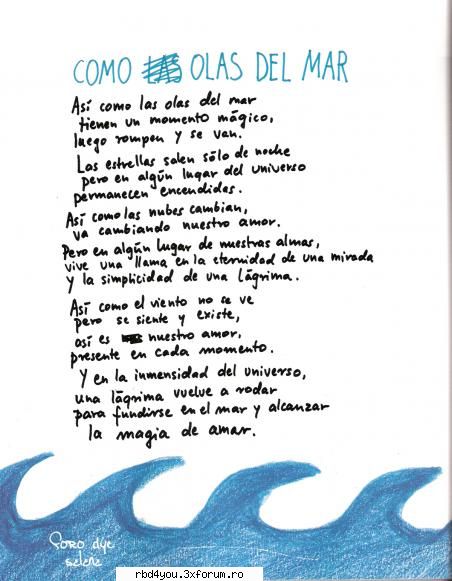 COMO LAS OLAS DEL MAR
Así como las olas del mar
tienen un momento mágico,
luego rompen y se van.
Las estrellas salen sólo de noche
pero en algún lugar del universo
permanecen encendidas.
Así como las nubes cambian,
va cambiando nuestro amor.
Pero en algún lugar de nuestras almas,
vive una llama en la eternidad de una mirada
y la simplicidad de una lágrima.
Así como el viento no se ve
pero se siente y existe,
así es nuestro amor,
presente en cada momento.
Y en la inmensidad del universo,
una lágrima vuelve a rodar
para fundirse en el mar y alcanzar
la magia de amar.
rbd4you.3xforum.ro